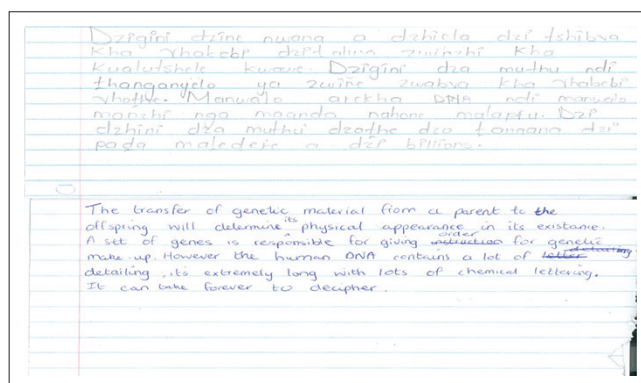 Dzigini dzine nwana a dzhiela dzi tshibva
Kha vhakebi dzi
Kha
Kualutshele kwawe. Dzigini dza muthu ndi
thanganyelo ya zwine zwabva kha vhabebi
vhothe. Manwalo DNA ndi manwalo
manzhi nga maanda nahone malapfu. Dzi
dzhini dza muthu dzothe dzo tangana dzi
pada a dzi billions.
The transfer of genetic material from a parent to the
offspring will determine its physical appearance in its existanie.
A set of genes is responsible for giving instruction order for genetic
make-up. However the human DNA contains a lot of letter detailing
detailing, its extremely long with lots of chemical lettering.
It can take forever to decipher.